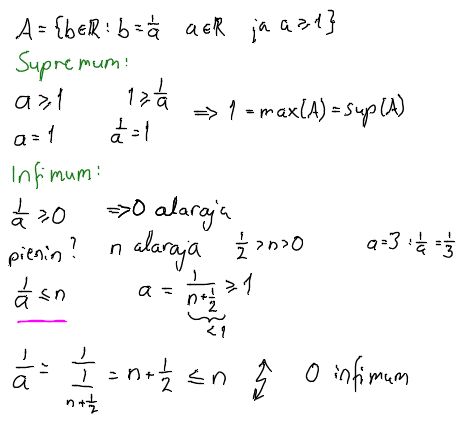 A = {b∈ℝ : b = 1/a a∈ℝ ja a ≥ 1}
Supremum:
a ≥ 1 1 ≥ 1/a ⇒ 1 = max(A) = sup(A)
a = 1 1/a = 1
Infimum:
1/a ≥ 0 ⇒ 0 alaraja
pienin? n alaraja 1/2 > n > 0 a = 3 : 1/a = 1/3
1/a ≤ n a = 1/(n+1/2) ≥ 1
< 1
1/a = 1/(1/(n+1/2)) = n + 1/2 ≤ n ↯ 0 infimum